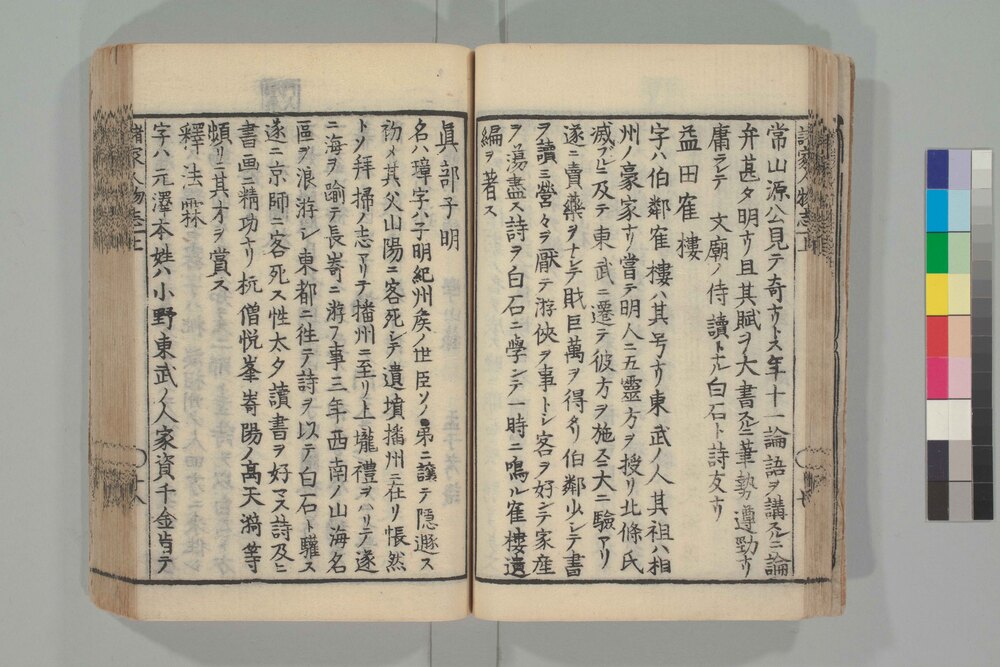 常山源公見テ奇ナリトス年十一論語ヲ講スルニ論
弁甚タ明ナリ且其賦ヲ大書スルニ筆勢遵勁ナリ
庸ラレテ 文廟ノ侍讀トナル白石ト詩友ナリ
益田隺樓
字ハ伯鄰隺樓ハ其号ナリ東武ノ人其祖ハ相
州ノ豪家ナリ嘗テ明人ニ五靈方ヲ授リ北條氏
滅フルニ及テ東武ニ遷テ彼方ヲ施ス大ニ驗アリ
遂ニ賣藥ヲナシテ貲巨萬ヲ得タリ伯鄰少シテ書
ヲ讀ミ營々ヲ厭テ游俠ヲ事トシ客ヲ好ンテ家産
ヲ蕩盡ス詩ヲ白石ニ學ンテ一時ニ鳴ル隺樓遺
編ヲ著ス
眞部子明
名ハ璋字ハ子明紀州矦ノ世臣ソノ弟ニ讓テ隱遯ス
初メ其父山陽ニ客死シテ遺墳播州ニ在リ悵然
トシテ拜掃ノ志アリテ播州ニ至リ上壠禮ヲハリテ遂
ニ海ヲ踰テ長嵜ニ游フ事三年西南ノ山海名
區ヲ浪游シ東都ニ徃テ詩ヲ以テ白石ト驩ス
遂ニ京師ニ客死ス性太タ讀書ヲ好マス詩及ヒ
書画ニ精功ナリ杭僧悦峯嵜陽ノ高天漪等
頻リニ其才ヲ賞ス
釋法霖
字ハ元澤本姓ハ小野東武ノ人家資千金皆テ
諸家人物志上